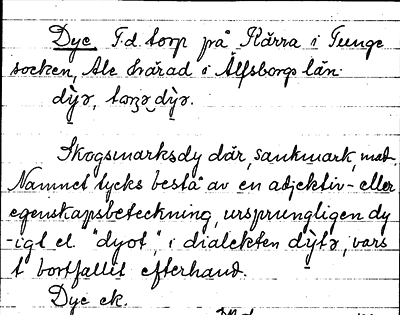 Dye F.d. torp på Kärra i Tunge
socken, Ale härad i Älfsborgs län.
dỳɂ, tɷrpɂ dỳɂ.
Skogsmarksdy där, sankmark, mad.
Namnet tycks bestå av en adjektiv- eller
egenskapsbeteckning, ursprungligen dy
-igt el. "dyot", i dialekten dỳtɂ, vars
t bortfallit efterhand.
Dye ek.